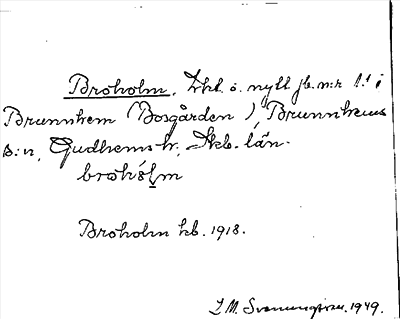 Broholm, Lht. o. nytt jb. n:r 1:1 i
Brunnhem (Bosgården), Brunnhems
s:n, Gudhems hr, Skb. län.
brohólm
Broholm kb. 1918.
I. M. 1949.